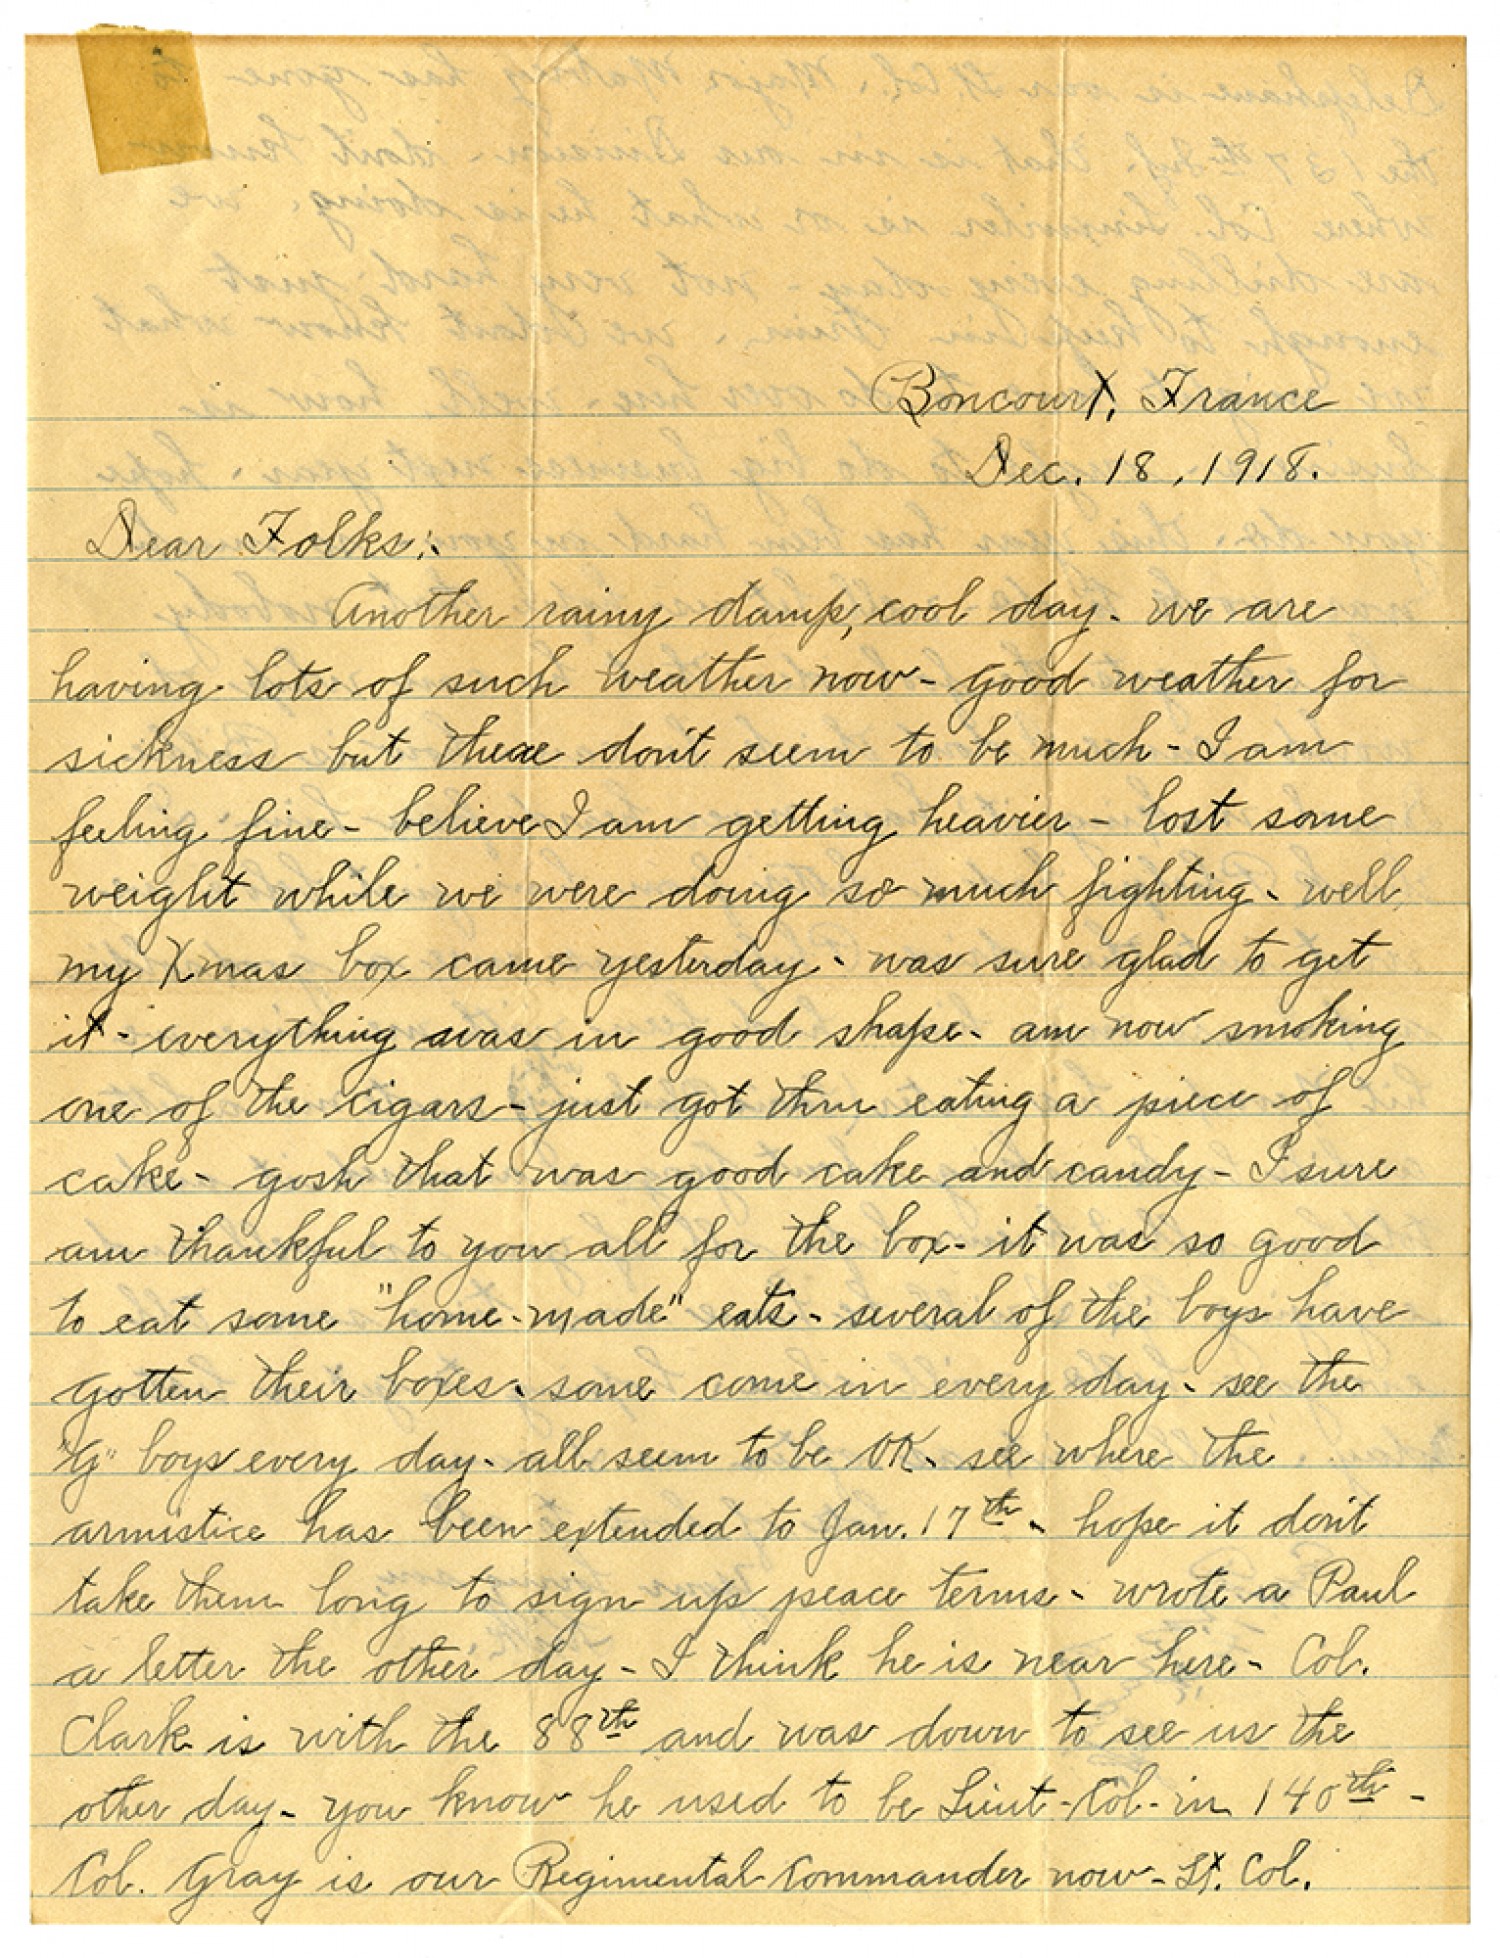 Boncourt, France
Dec. 18, 1918.
Dear Folks:-
Another rainy damp, cool day - we are
having lots of such weather now - good weather for
sickness but there don't seem to be much - I am
feeling fine - believe I am getting heavier - lost some
weight while we were doing so much fighting - well
my Xmas box came yesterday - was sure glad to get
it - everything was in good shape - am now smoking
one of the cigars - just got thru eating a piece of
cake - gosh that was good cake and candy - I sure
am thankful to you all for the box - it was so good
to eat some "home-made" eats - several of the boys have
gotten their boxes - some come in every day - see the
"G" boys every day - all seem to be OK - see where the
armistice has been extended to Jan. 17th - hope it don't
take them long to sign up peace terms - wrote a Paul
a letter the other day - I think he is near here - Col.
Clark is with the 88th and was down to see us the
other day - you know he used to be Lieut-Col - in 140th -
Col. Gray is our Regimental Commander now - Lt. Col.